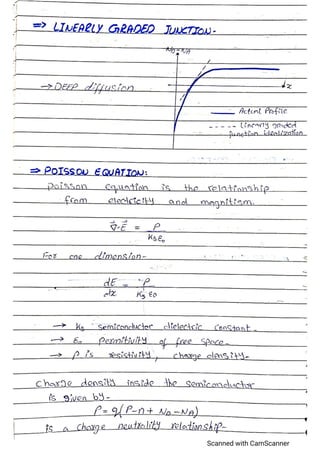 ⇒ LINEARLY GRADED JUNCTION-
ND-NA
→ DEEP diffusion
x
Actual Profile
Linearly graded
junction idealization
⇒ POISSON EQUATION:
Poisson equation is the relationship
from electricity and magnitism.
∇·E = ρ / Ks ε0
For one dimension-
dE/dx = ρ / Ks ε0
→ ks semiconductor dielectric constant.
→ Eo Permitivity of free space.
→ ρ is resistivity, charge density.
Charge density inside the semiconductor
is given by-
ρ = q(P-n + ND-NA)
is a charge neutrality relationship-
Scanned with CamScanner